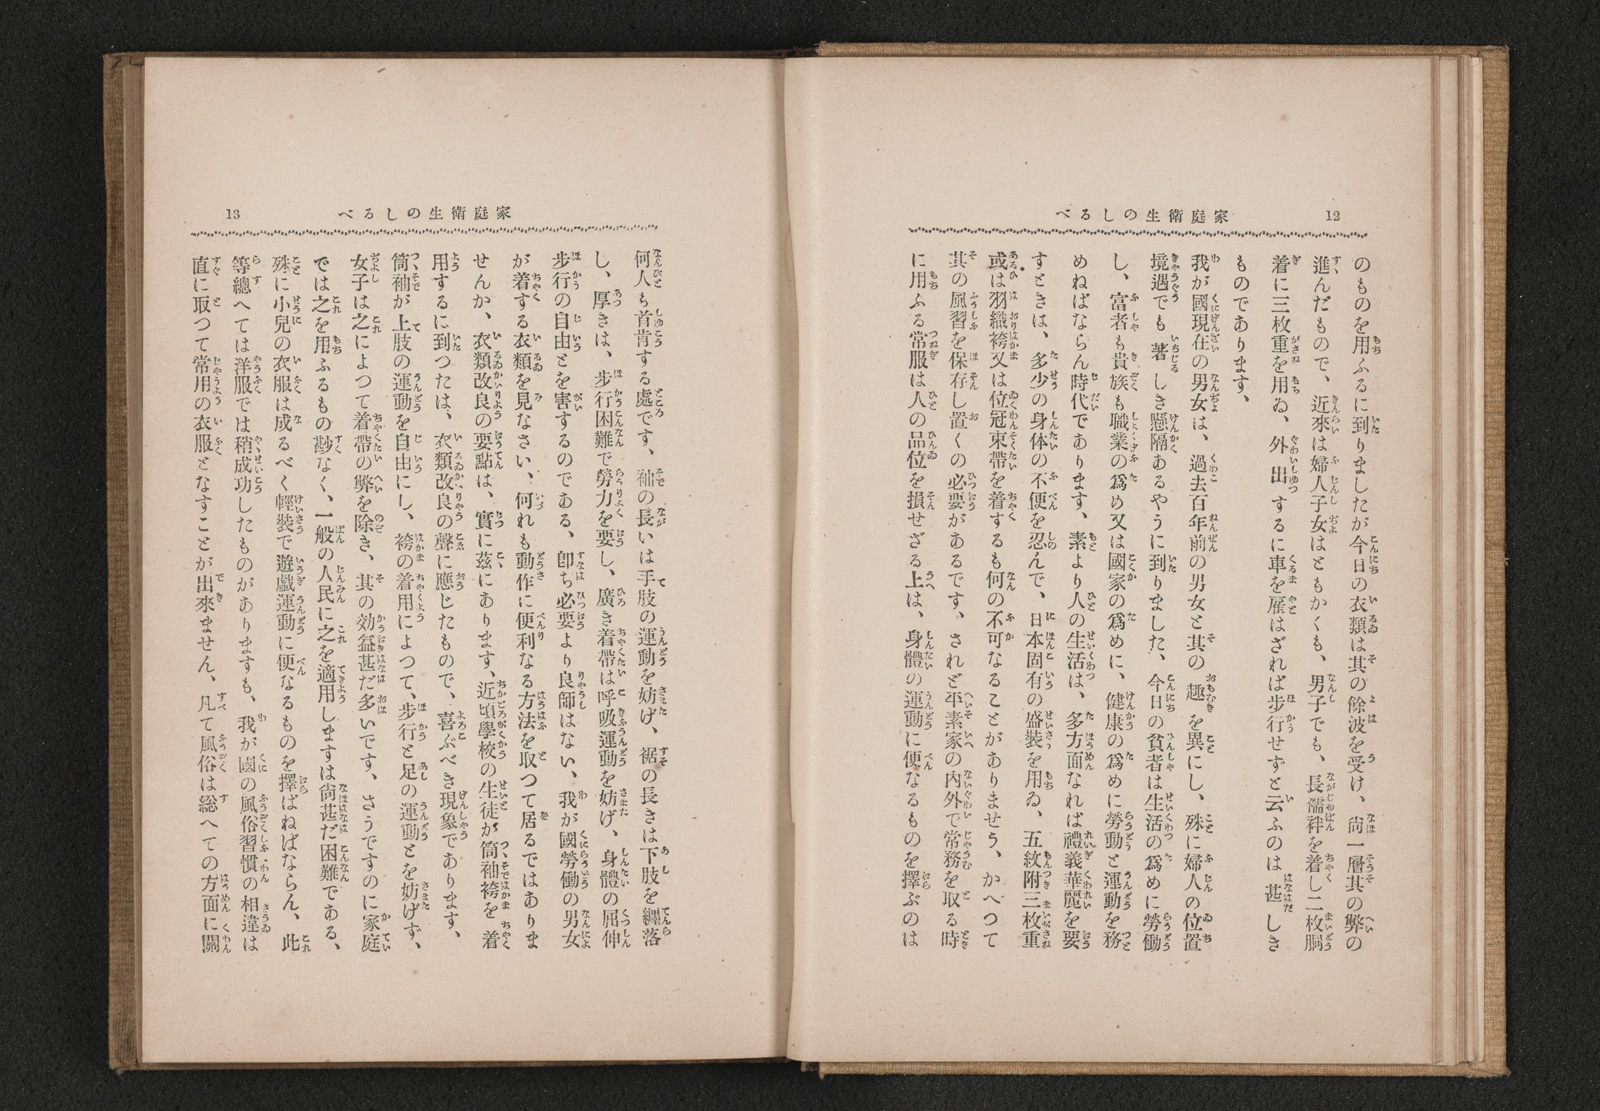 家庭衛生のしるべ
12
のものを用ふるに到りましたが今日の衣類は其の餘波を受け、尙一層其の弊の
進んだもので、近來は婦人子女はともかくも、男子でも、長襦袢を着し二枚胴
着に三枚重を用ゐ、外出するに車を雇はざれば步行せずと云ふのは甚しき
ものであります、
我が國現在の男女は、過去百年前の男女と其の趣を異にし、殊に婦人の位置
境遇でも著しき懸隔あるやうに到りました、今日の貧者は生活の爲めに勞働
し、富者も貴族も職業の爲め又は國家の爲めに、健康の爲めに勞働と運動を務
めねばならん時代であります、素より人の生活は、多方面なれば禮義華麗を要
すときは、多少の身体の不便を忍んで、日本固有の盛裝を用ゐ、五紋附三枚重
或は羽織袴又は位冠束帶を着するも何の不可なることがありませう、かへつて
其の風習を保存し置くの必要があるです、されど平素家の內外で常務を取る時
に用ふる常服は人の品位を損せざる上は、身體の運動に便なるものを擇ぶのは
家庭衛生のしるべ
13
何人も首肯する處です、袖の長いは手肢の運動を妨げ、裾の長きは下肢を纏落
し、厚きは、步行困難で勞力を要し、廣き着帶は呼吸運動を妨げ、身體の屈伸
步行の自由とを害するのである、卽ち必要より良師はない、我が國勞働の男女
が着する衣類を見なさい、何れも動作に便利なる方法を取つて居るではありま
せんか、衣類改良の要點は、實に玆にあります、近頃學校の生徒が筒袖袴を着
用するに到つたは、衣類改良の聲に應じたもので、喜ぶべき現象であります、
筒袖が上肢の運動を自由にし、袴の着用によつて、步行と足の運動とを妨げず、
女子は之によつて着帶の弊を除き、其の効益甚だ多いです、さうですのに家庭
では之を用ふるもの尠なく、一般の人民に之を適用しますは尙甚だ困難である、
殊に小兒の衣服は成るべく輕裝で遊戲運動に便なるものを擇ばねばならん、此
等總へては洋服では稍成功したものがありますも、我が國の風俗習慣の相違は
直に取つて常用の衣服となすことが出來ません、凡て風俗は総へての方面に關